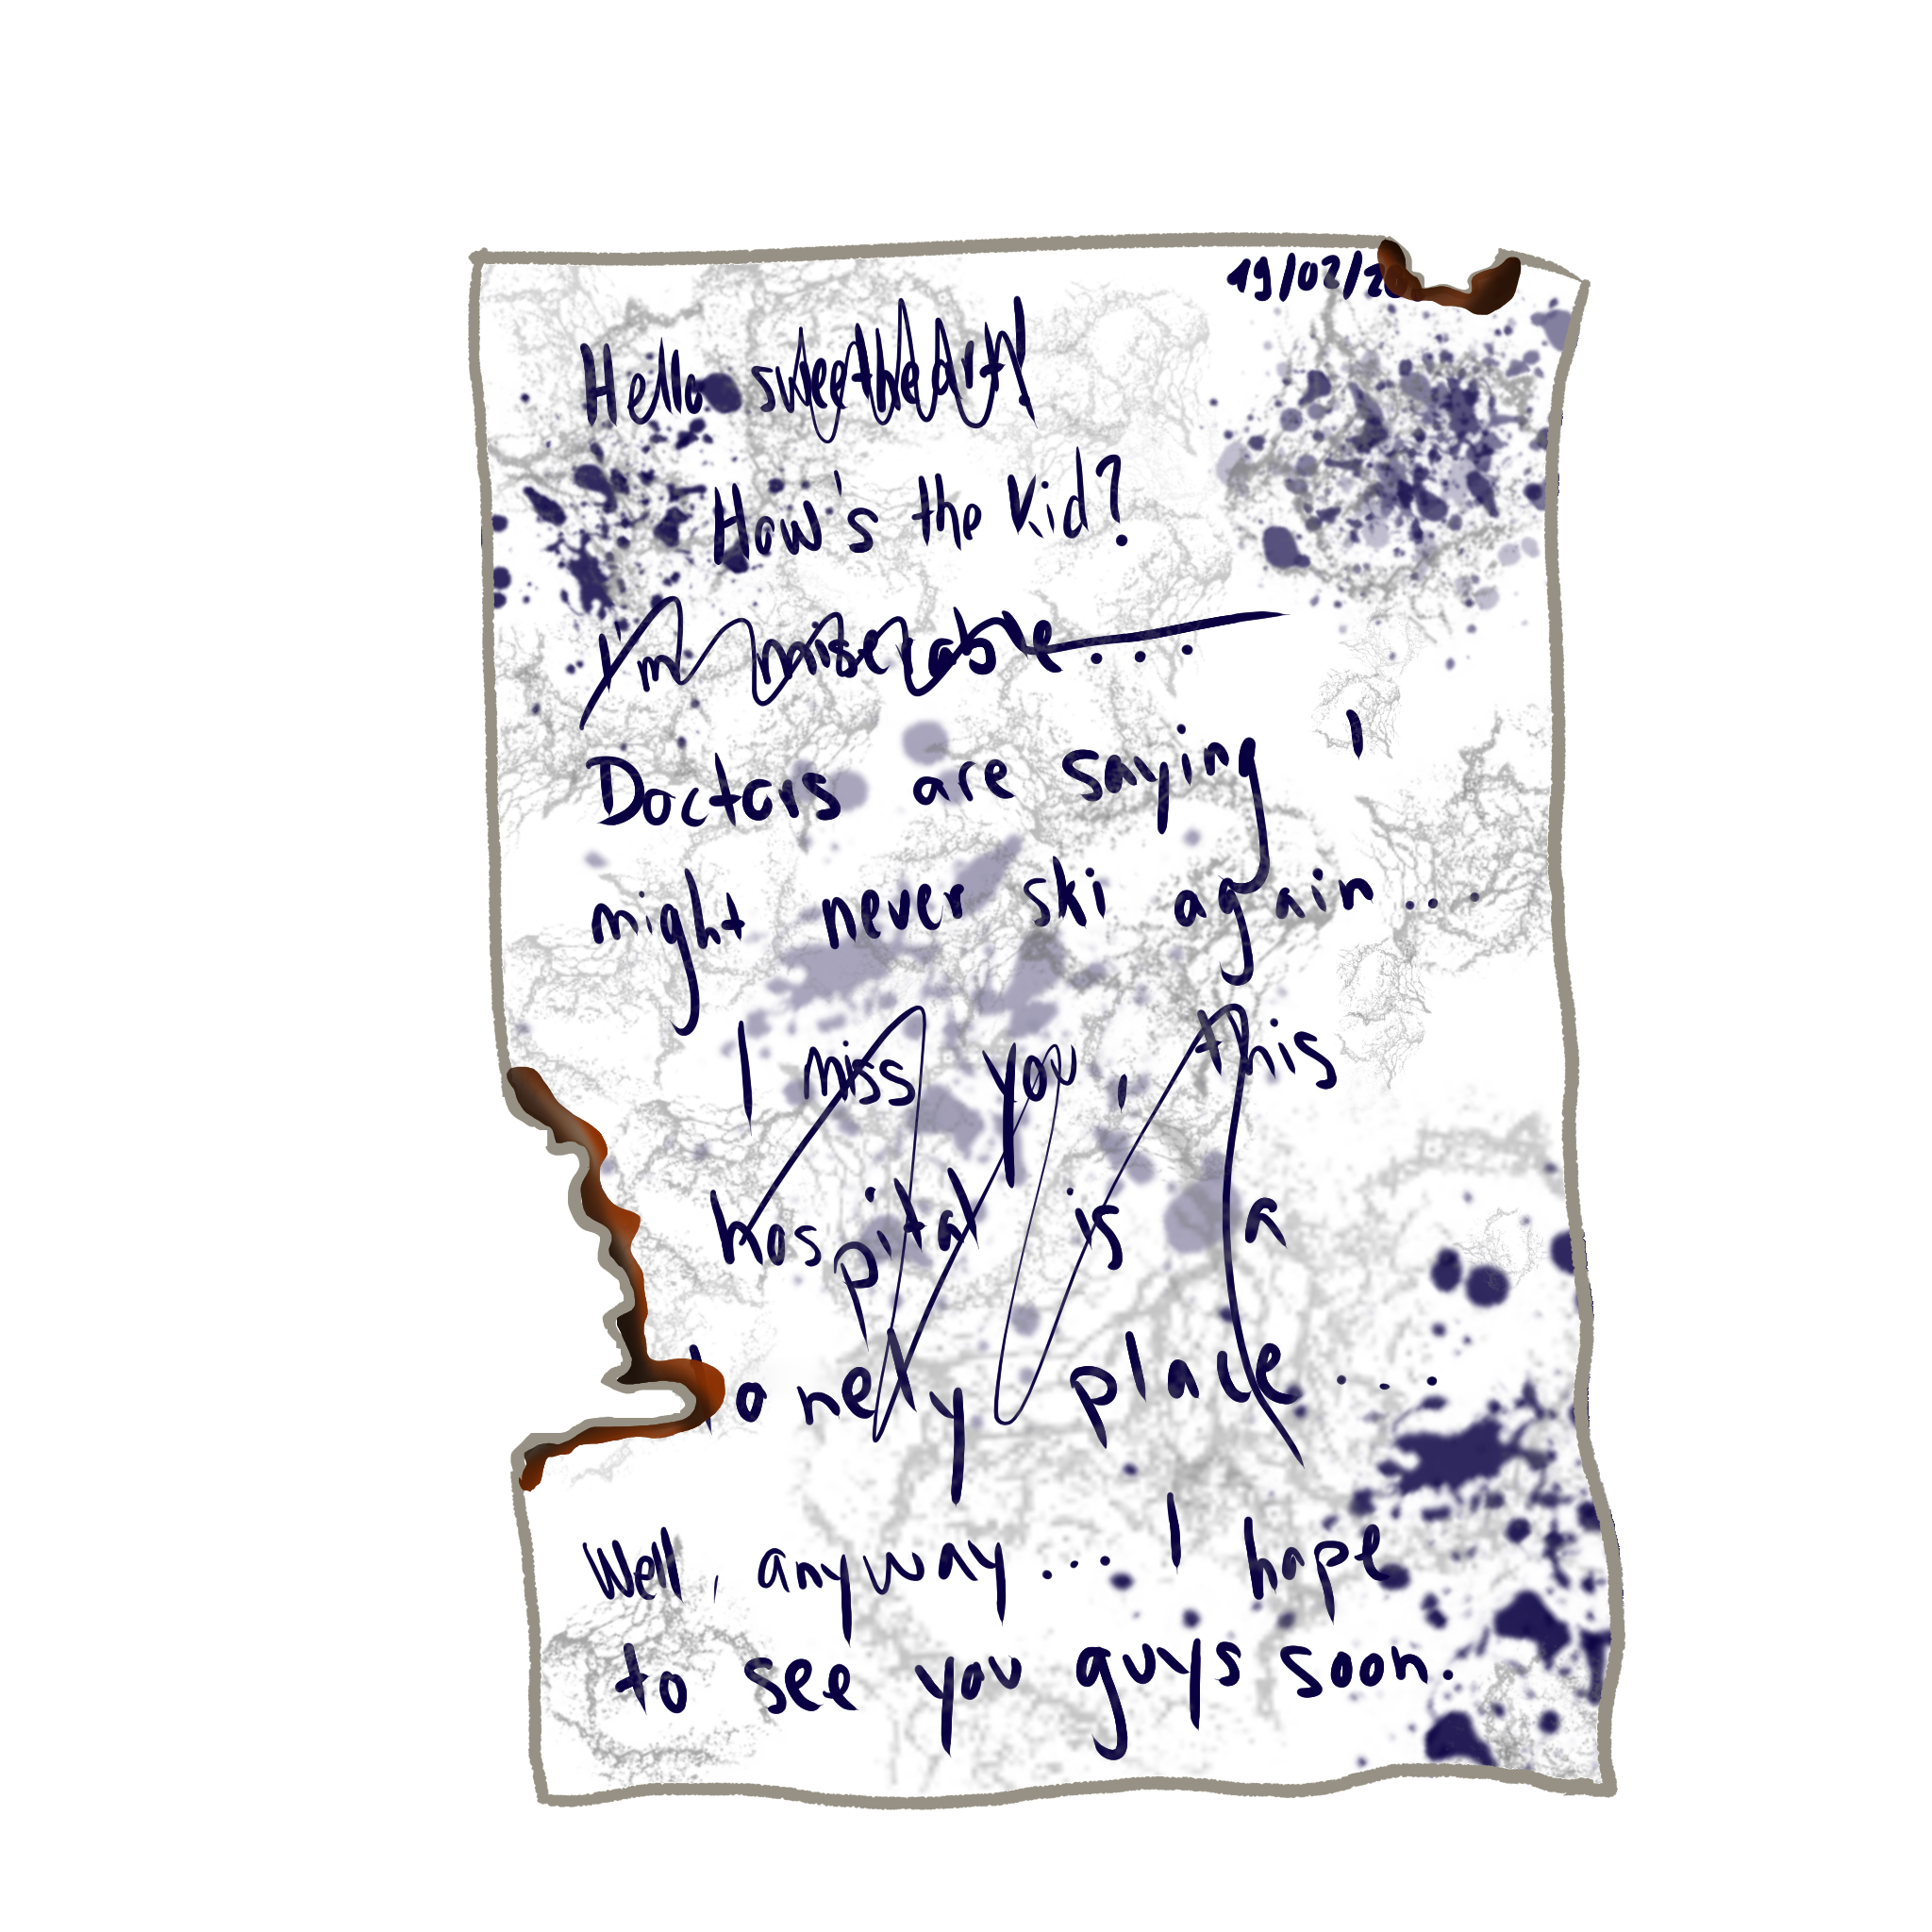 19/02/2
Hello sweetheart!
How's the kid?
I'm miserable...
Doctors are saying I
might never ski again...
I miss you, this
hospital is a
lonely place...
Well, anyway... I hope
to see you guys soon.